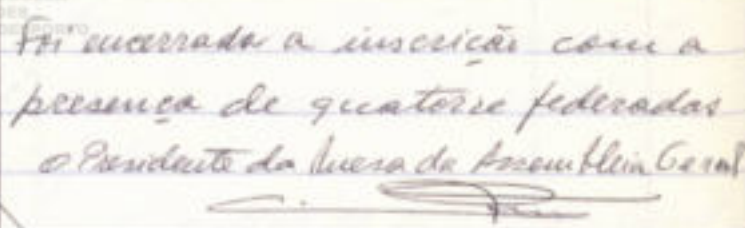 Foi encerrada a inscrição com a
presença de quatorze federadas
o Presidente da Mesa da Assembleia Geral